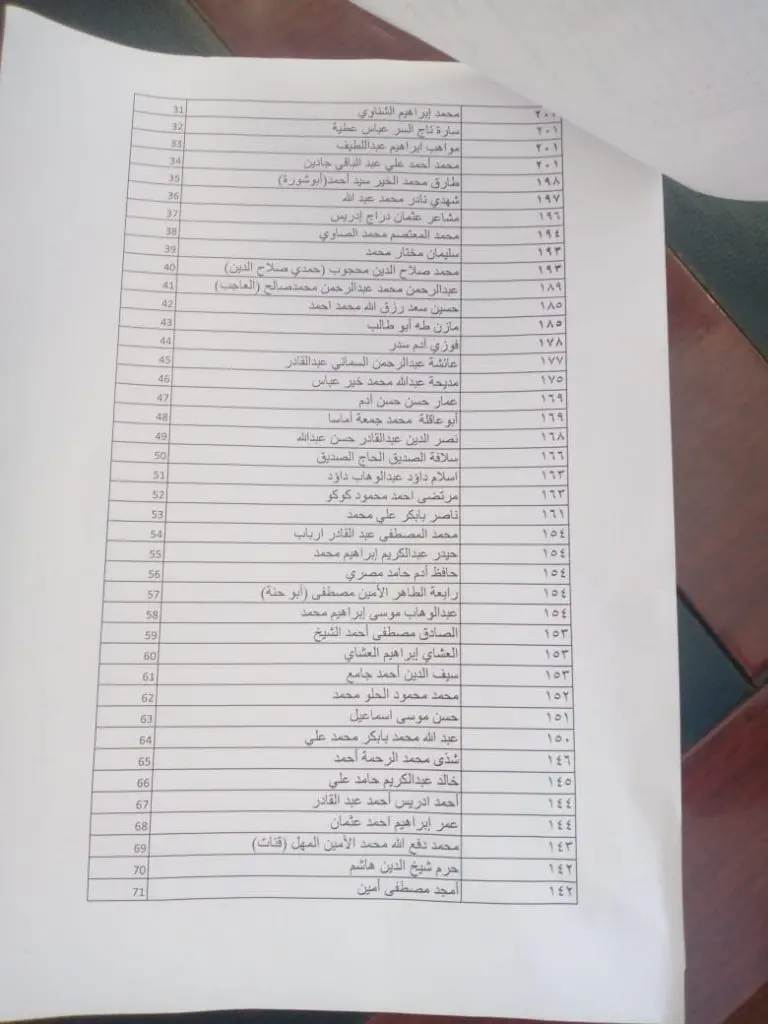 ٢٠١ محمد إبراهيم الشناوي 31
٢٠١ سارة تاج السر عباس عطية 32
٢٠١ مواهب ابراهيم عبداللطيف 33
٢٠١ محمد أحمد علي عبد الباقي جادين 34
١٩٨ طارق محمد الخير سيد أحمد(أبوشورة) 35
١٩٧ شهدي نادر محمد عبد الله 36
١٩٦ مشاعر عثمان دراج إدريس 37
١٩٤ محمد المعتصم محمد الصاوي 38
١٩٣ سليمان مختار محمد 39
١٩٣ محمد صلاح الدين محجوب (حمدي صلاح الدين) 40
١٨٩ عبدالرحمن محمد عبدالرحمن محمدصالح (العاجب) 41
١٨٥ حسين سعد رزق الله محمد احمد 42
١٨٥ مازن طه أبو طالب 43
١٧٨ فوزي آدم سدر 44
١٧٧ عائشة عبدالرحمن السماني عبدالقادر 45
١٧٥ مديحة عبدالله محمد خير عباس 46
١٦٩ عمار حسن حسن آدم 47
١٦٩ أبوعاقلة محمد جمعة أماسا 48
١٦٨ نصر الدين عبدالقادر حسن عبدالله 49
١٦٦ سلافة الصديق الحاج الصديق 50
١٦٣ اسلام داؤد عبدالوهاب داؤد 51
١٦٣ مرتضى احمد محمود كوكو 52
١٦١ ناصر بابكر علي محمد 53
١٥٤ محمد المصطفى عبد القادر ارباب 54
١٥٤ حيدر عبدالكريم إبراهيم محمد 55
١٥٤ حافظ آدم حامد مصري 56
١٥٤ رابعة الطاهر الأمين مصطفى (أبو حنة) 57
١٥٤ عبدالوهاب موسى إبراهيم محمد 58
١٥٣ الصادق مصطفى أحمد الشيخ 59
١٥٣ العشاي إبراهيم العشاي 60
١٥٣ سيف الدين أحمد جامع 61
١٥٢ محمد محمود الحلو محمد 62
١٥١ حسن موسى اسماعيل 63
١٥٠ عبد الله محمد بابكر محمد علي 64
١٤٦ شذى محمد الرحمة أحمد 65
١٤٥ خالد عبدالكريم حامد علي 66
١٤٤ أحمد ادريس أحمد عبد القادر 67
١٤٤ عمر إبراهيم احمد عثمان 68
١٤٣ محمد دفع الله محمد الأمين المهل (قنات) 69
١٤٢ حرم شيخ الدين هاشم 70
١٤٢ أمجد مصطفى أمين 71